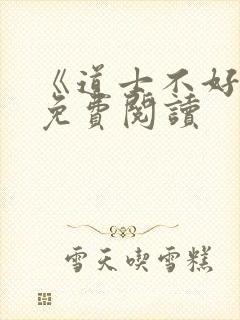 《道士不好
免費閱讀
雪天喫雪糕